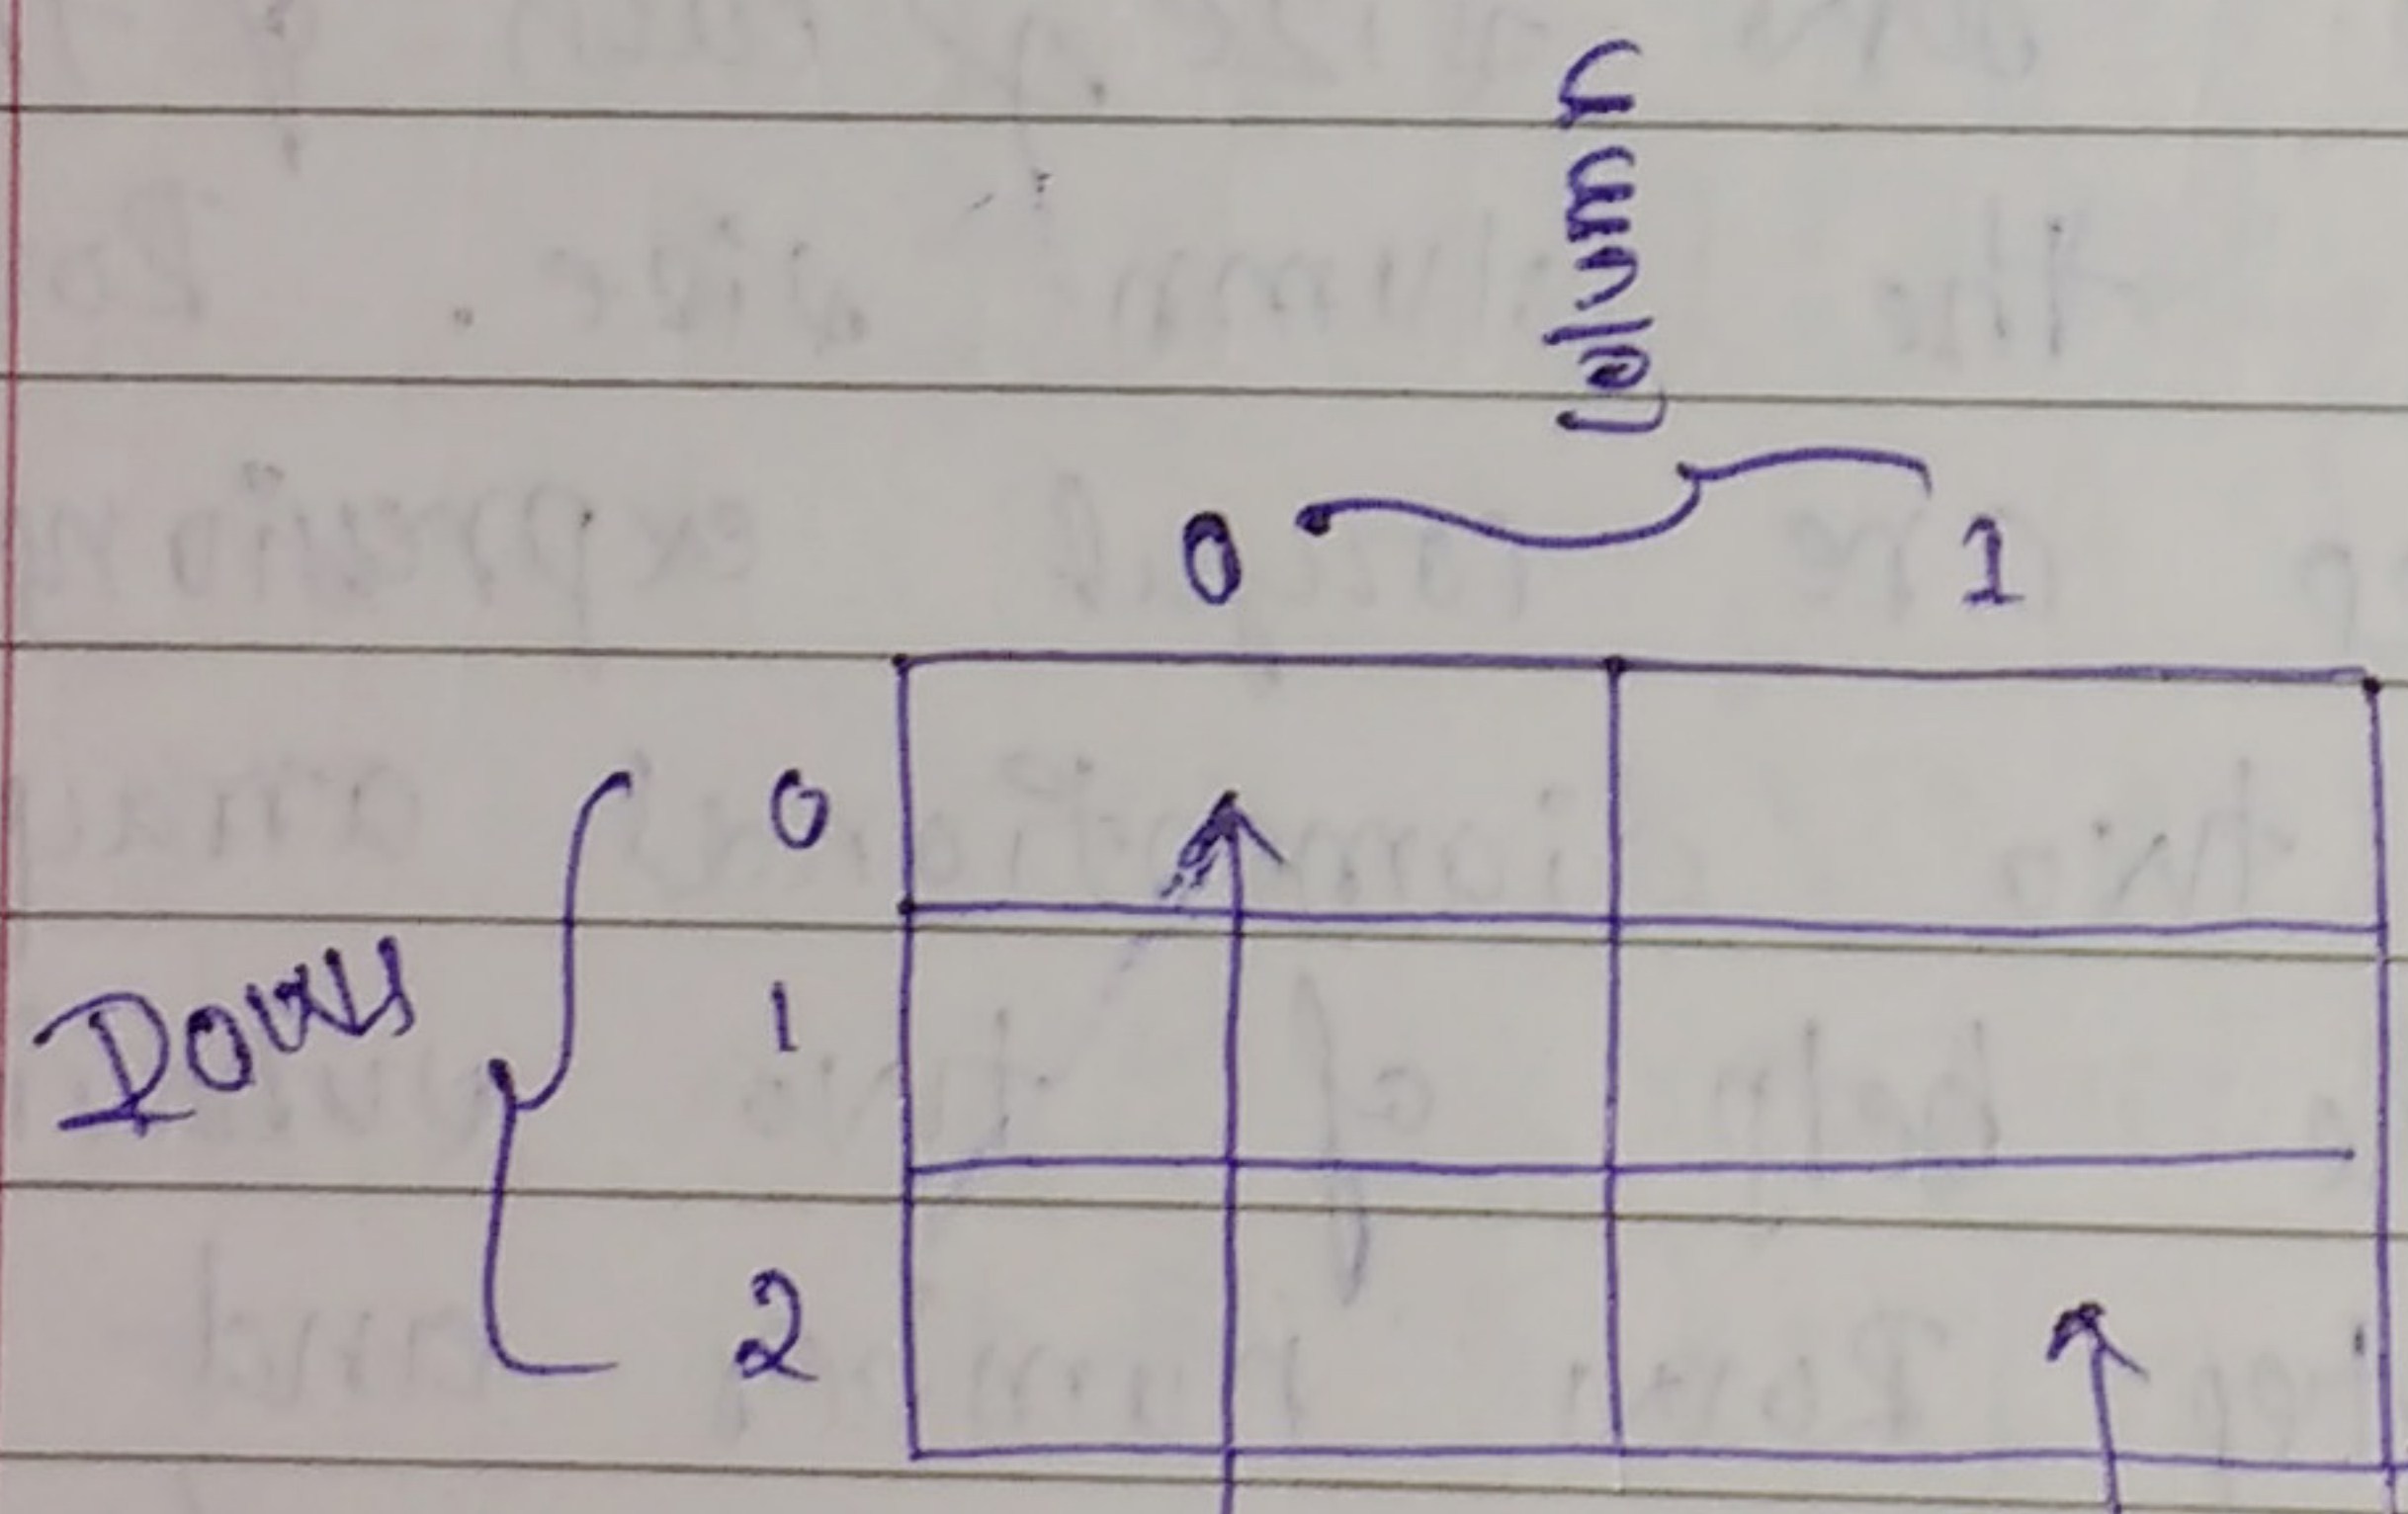 Column
0 1
0
Rows 1
2